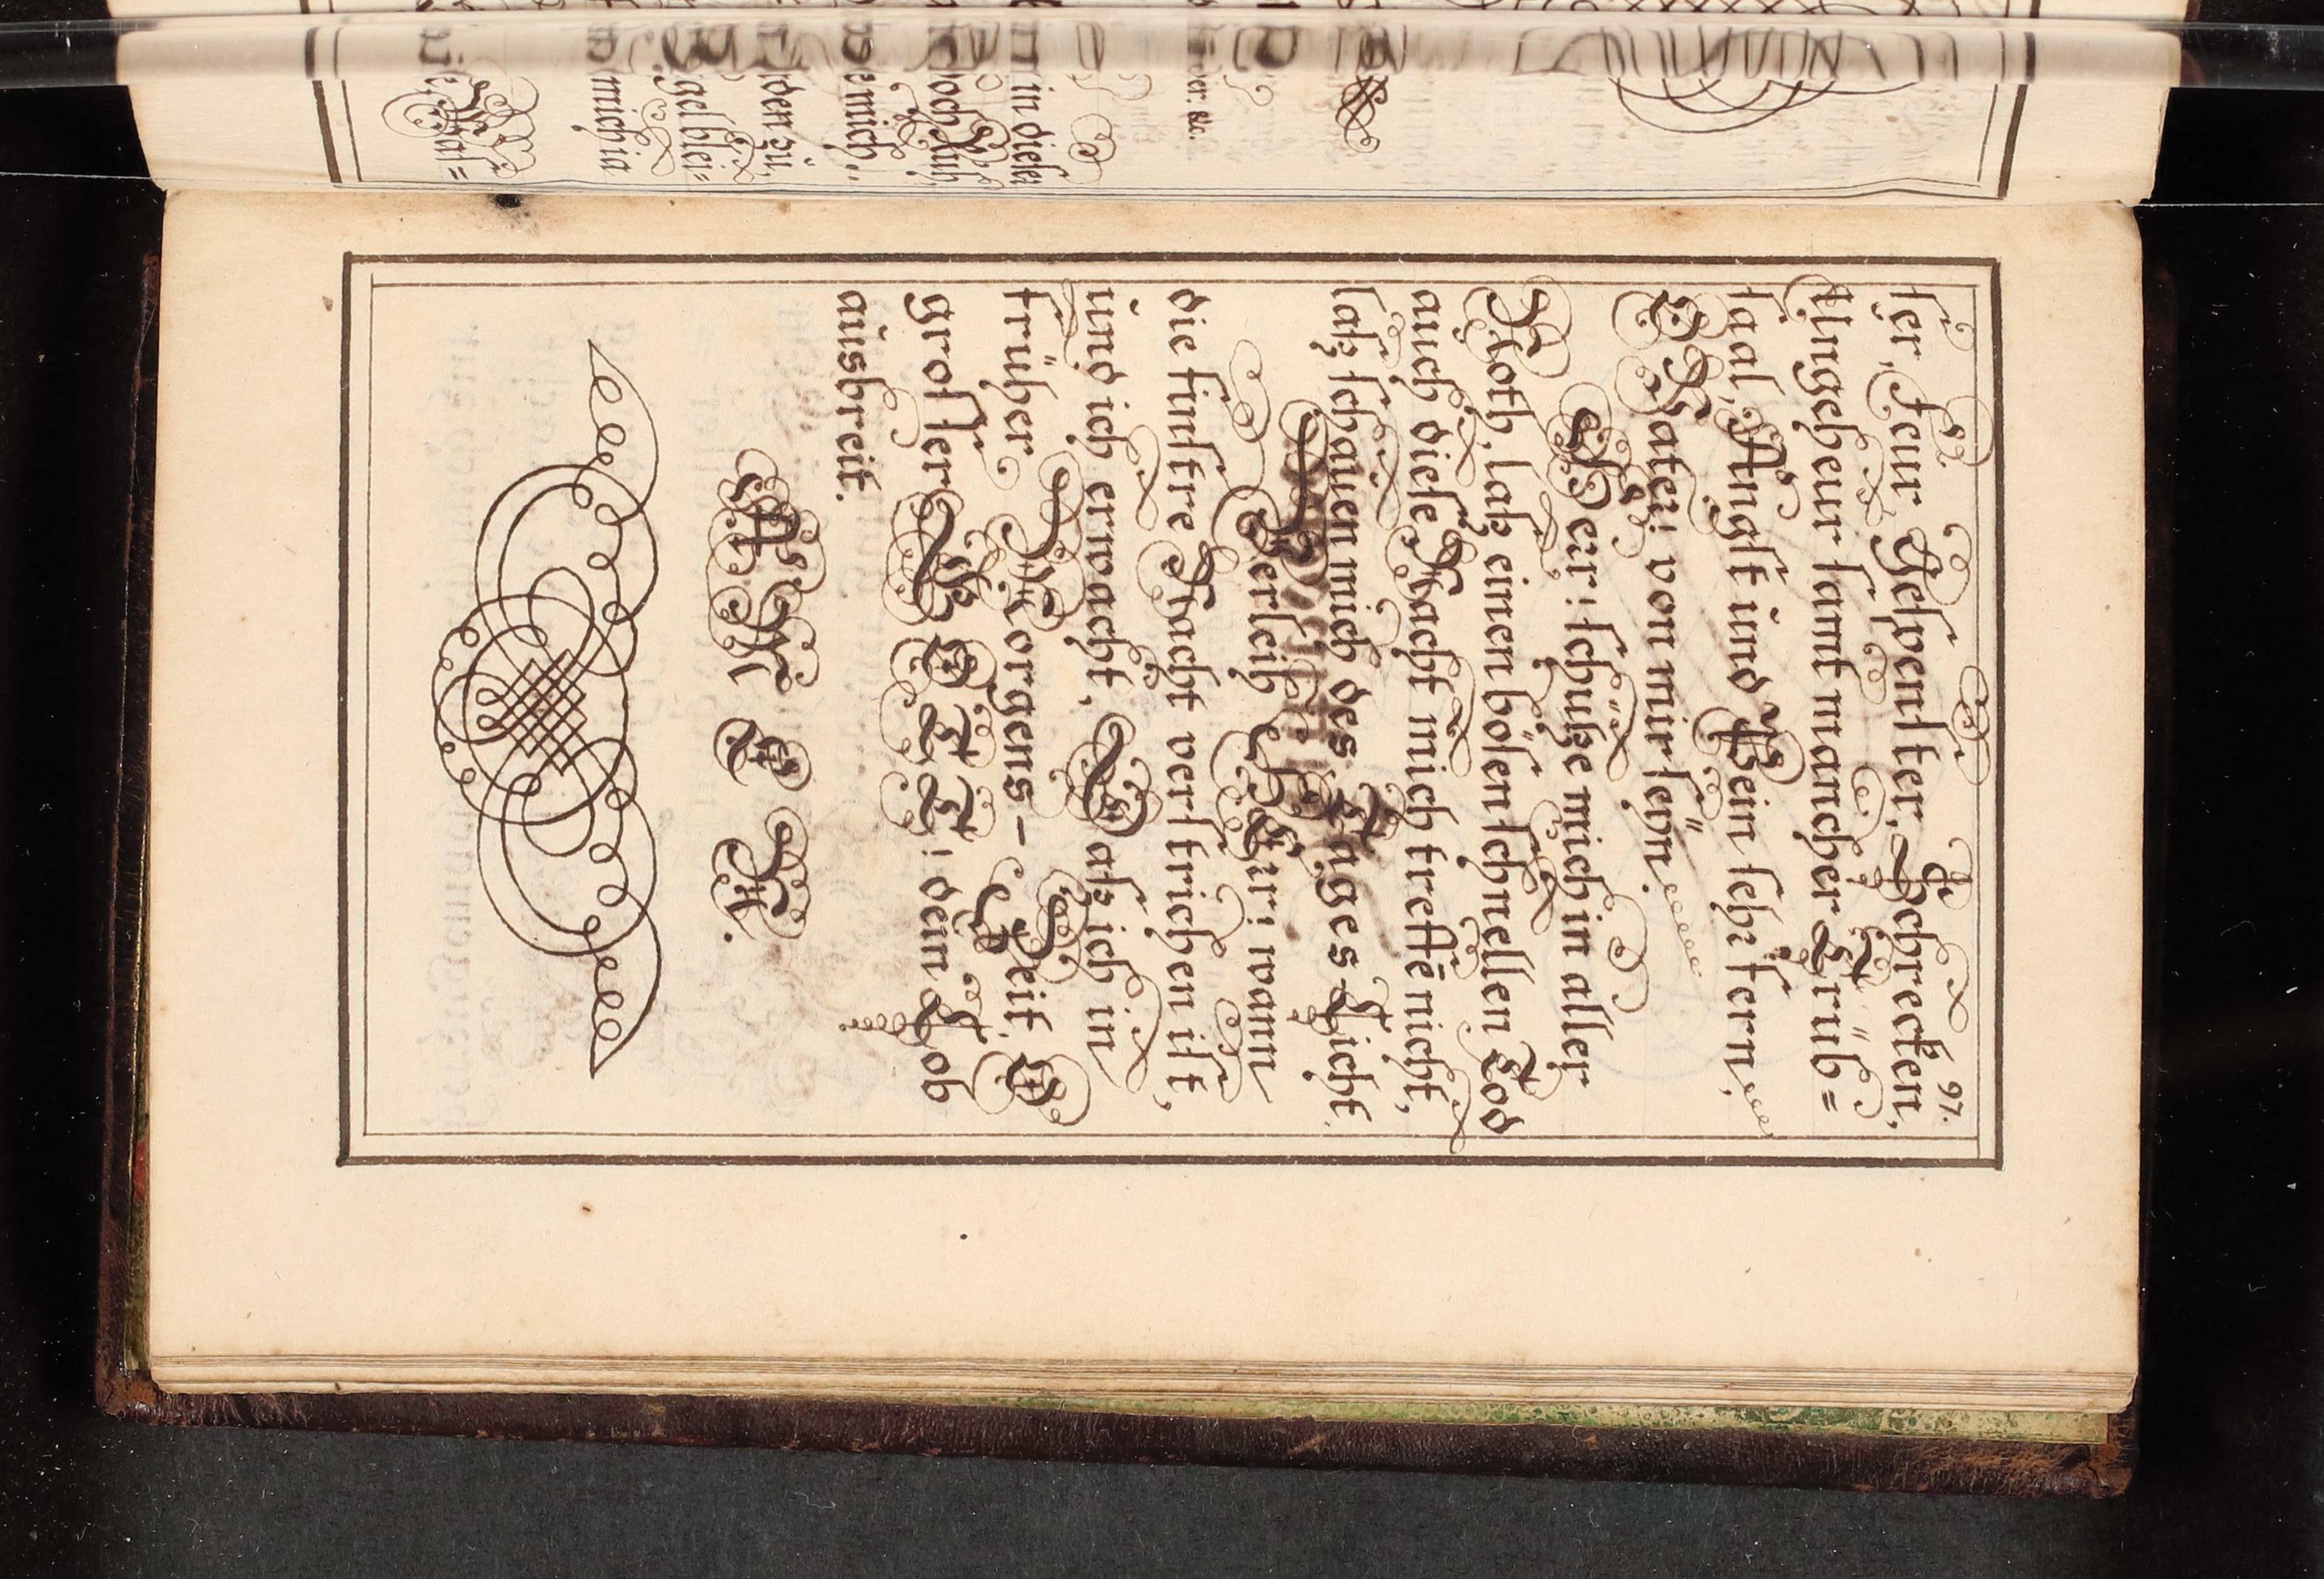 97.
ser, Feur, Gespenster, Schrecken,
Ungeheur samt mancher Trüb=
saal, Angst und Pein sehr fern,
O Vater! von mir seyn.
Herr! schütze mich in aller
Noth, laß einen bösen schnellen Tod
auch diese Nacht mich treffē nicht,
laß schauen mich des Tages-Licht.
Verleih HErr! wann
die finstre Nacht verstrichen ist,
und ich erwacht, Daß ich in
früher Morgens-Zeit, O
grosser GOTT! dein Lob
ausbreit.
AMEN.
mich ia
blei=
den zu,
mich,
doch
in dieser